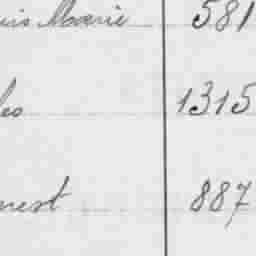 uis Marie 581
les 1315
nest 887